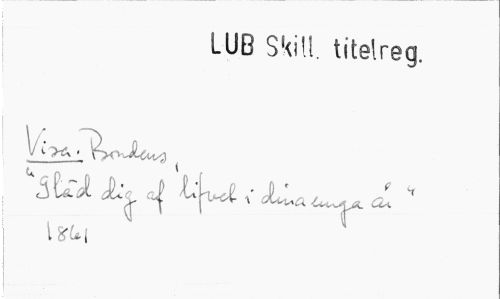 LUB Skill. titelreg.
Visa. Bondens,
"Gläd dig af lifvet i dina unga år"
1861